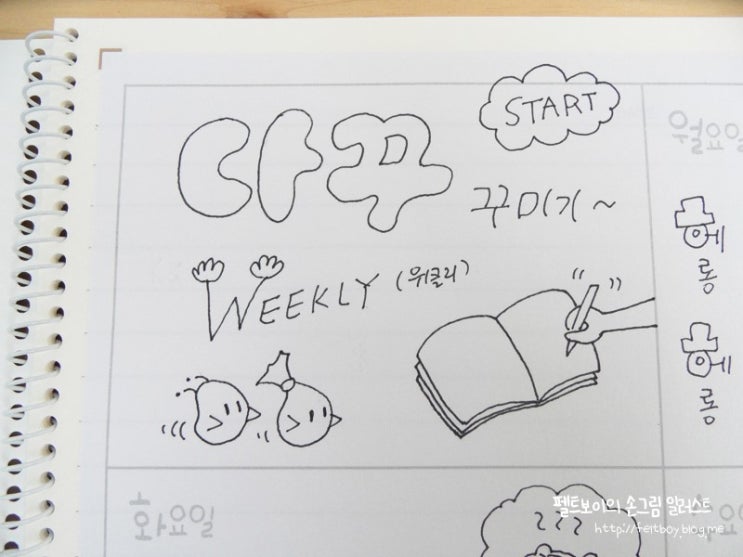 START
다꾸
꾸미기~
WEEKLY (위클리)
월요일
헤롱
헤롱
화요일
zzz
펠트보이의 손그림 일러스트
http://feltboy.blog.me